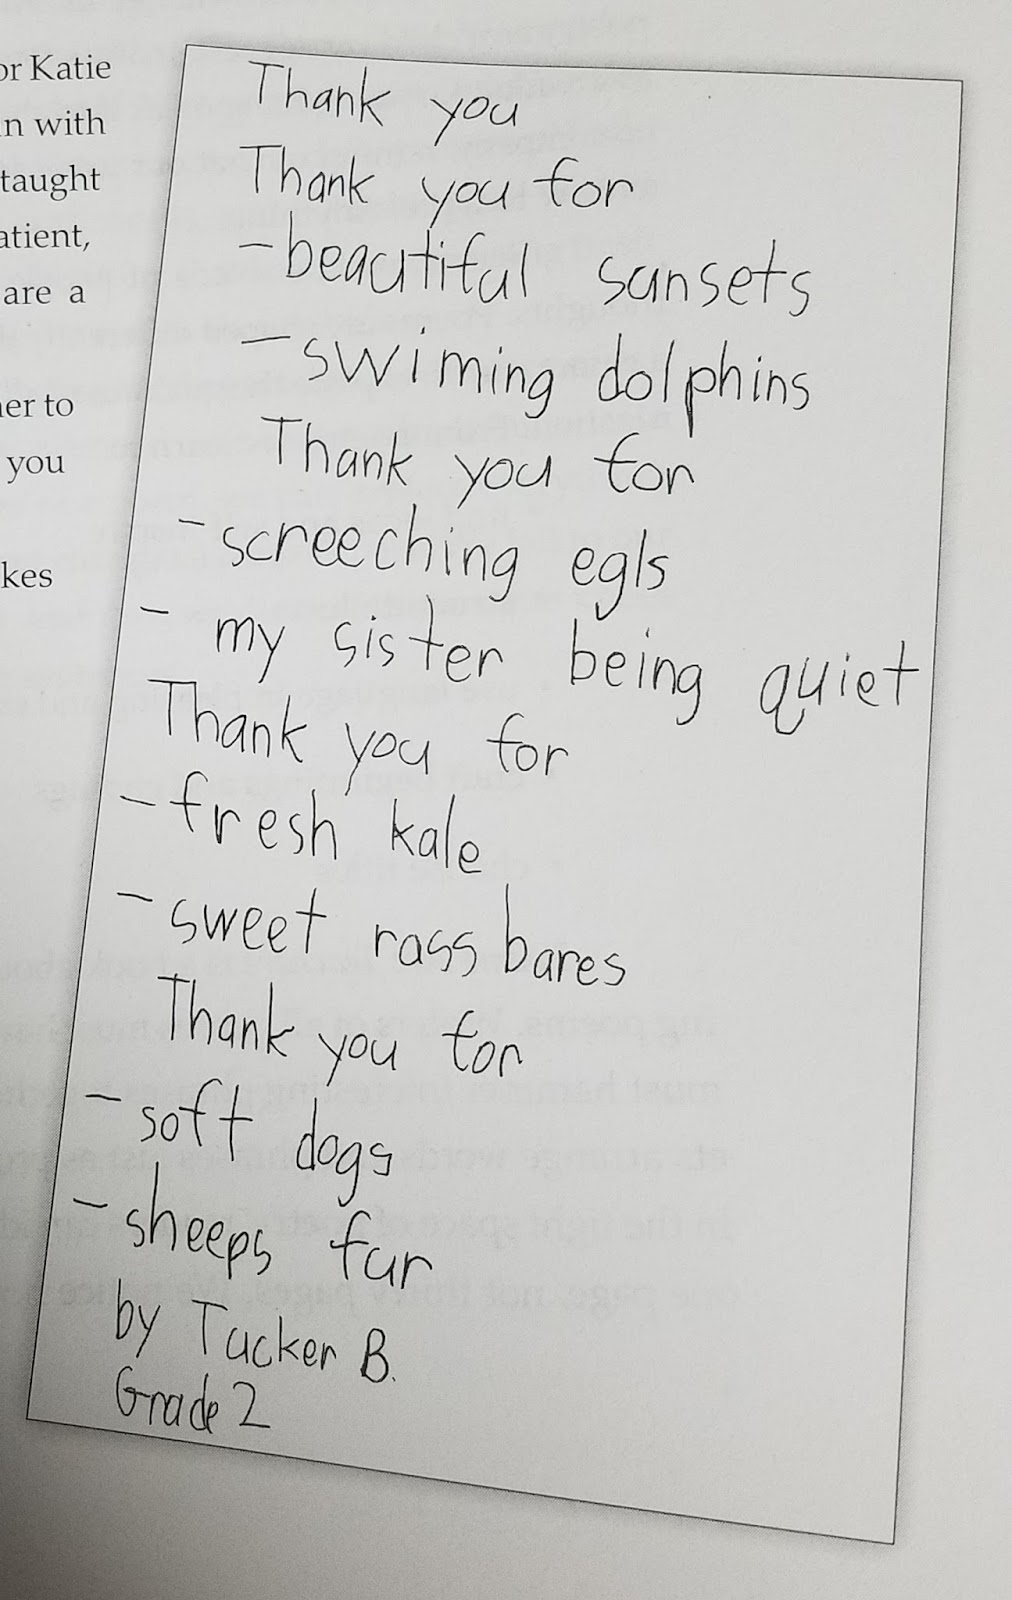 or Katie
n with
taught
atient,
are a
er to
you
kes
Thank you
Thank you for
-beautiful sunsets
-swiming dolphins
Thank you for
-screeching egls
- my sister being quiet
Thank you for
-fresh kale
-sweet rass bares
Thank you for
-soft dogs
-sheeps fur
by Tucker B.
Grade 2